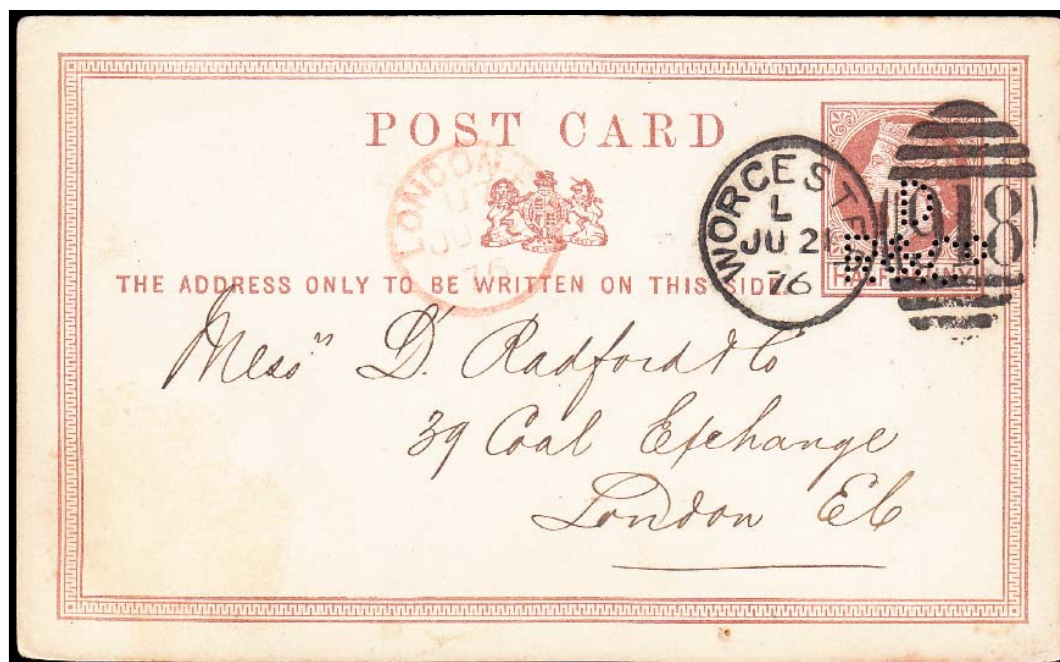 POST CARD
LONDON
JU
76
WORCESTE
L
JU 21
76
918
D
THE ADDRESS ONLY TO BE WRITTEN ON THIS SIDE.
HALFPENNY
Messrs D. Radford & Co
39 Coal Exchange
London EC